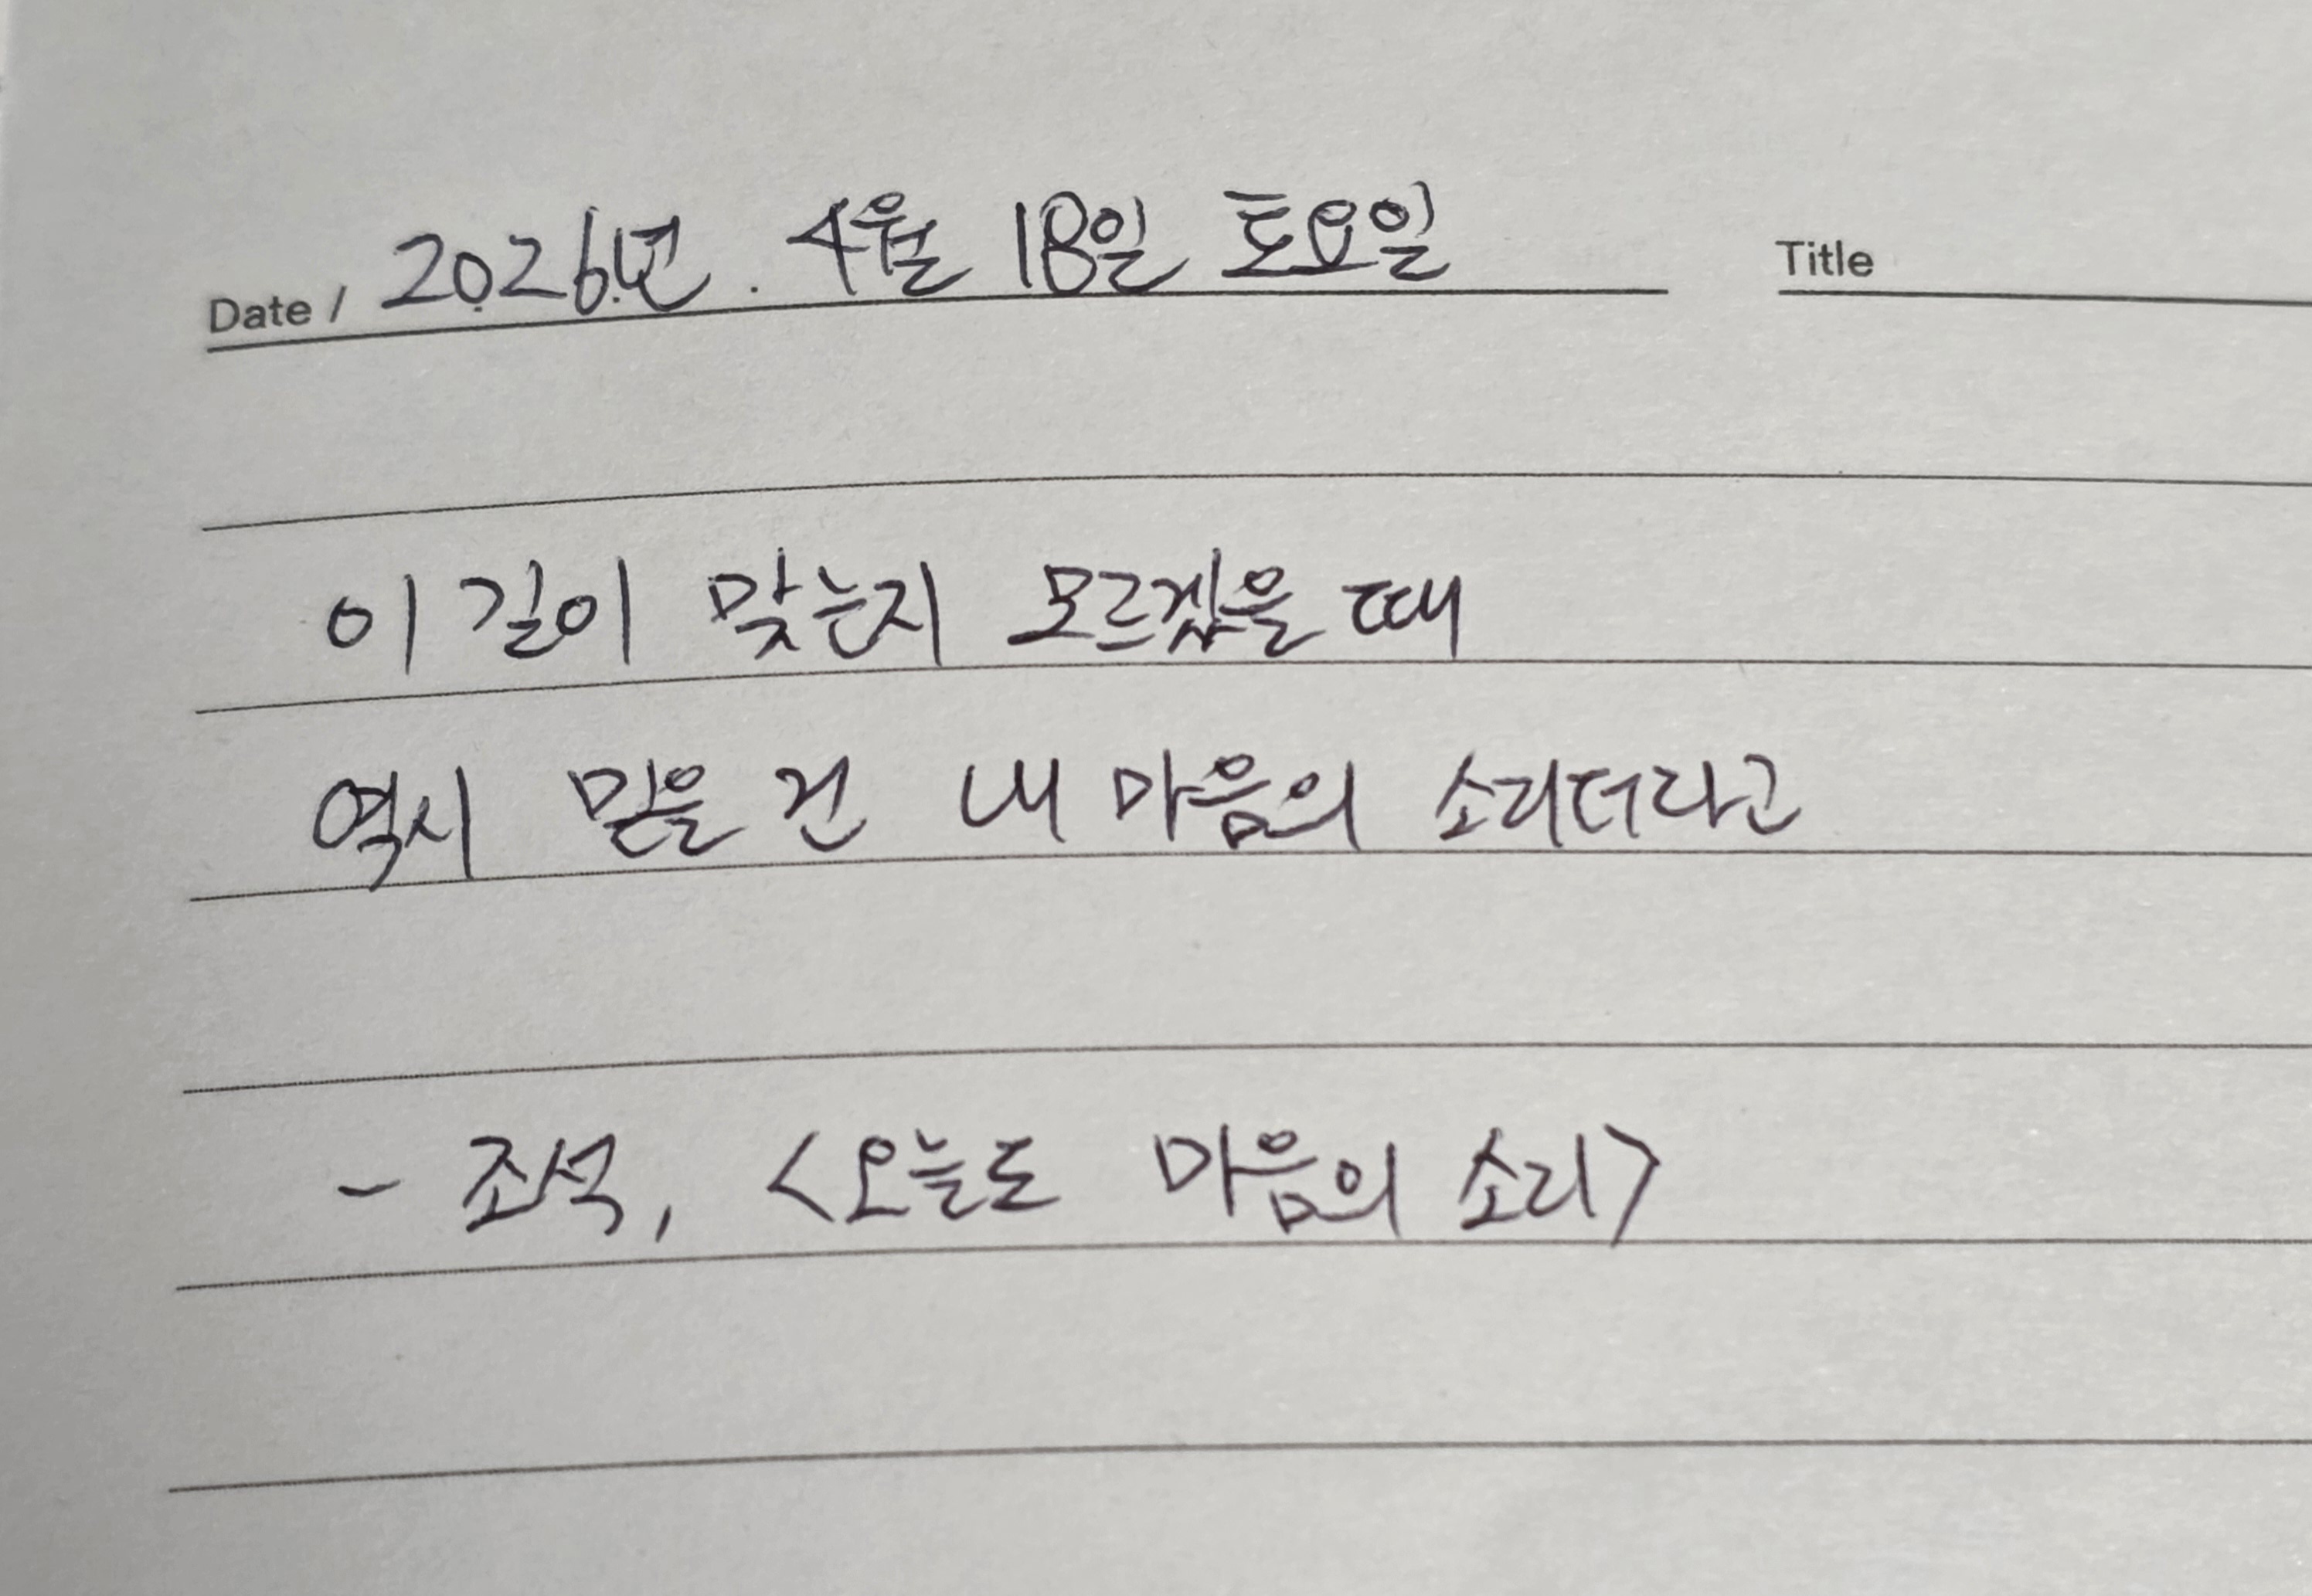 Date / 2026년. 4월 18일 토요일 Title
이 길이 맞는지 모르겠을 때
역시 믿을 건 내 마음의 소리더라고
- 조석, <오늘도 마음의 소리>